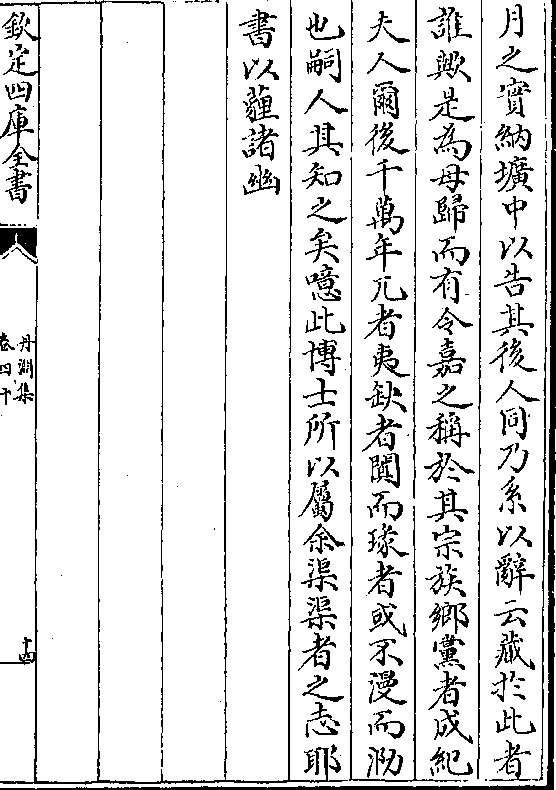 月之實納壙中以告其後人同乃系以辭云藏於此者
誰歟是為母歸而有令嘉之稱於其宗族鄉黨者成紀
夫人爾後千萬年兀者夷缺者闐而瑑者或不漫而泐
也嗣人其知之矣噫此博士所以屬余渠渠者之志耶
書以薶諸幽
欽定四庫全書
丹淵集
卷四十
十四